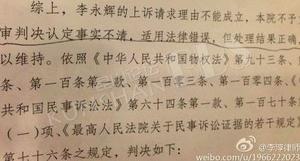 综上，李永辉的上诉请求理由不能成立，本院不予
审判决认定事实不清，适用法律错误，但处理结果正确，
以维持。依照《中华人民共和国物权法》第九十三条、
条、第一百条第一款、第一百零三条、第一百零四条、《
共和国民事诉讼法》第六十四条第一款、第一百七十条
（一）项、《最高人民法院关于民事诉讼证据的若干规定》
第七十六条之规定，判决如下：
@李滨律师
weibo.com/1966222023